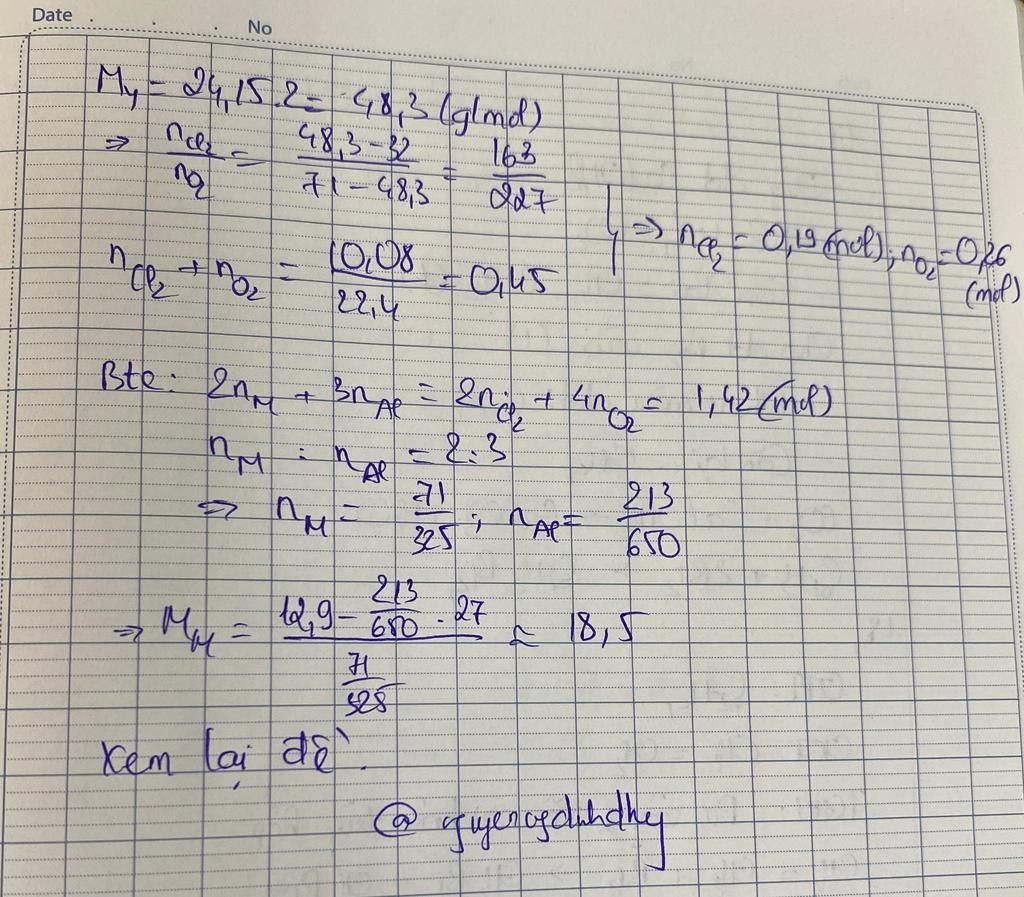 Date . . No
M_Y = 24,15.2 = 48,3 (g/mol)
⇒ n_Cl2 / n_O2 = (48,3 - 32) / (71 - 48,3) = 163 / 227
n_Cl2 + n_O2 = 10,08 / 22,4 = 0,45
} ⇒ n_Cl2 = 0,19 (mol); n_O2 = 0,26 (mol)
Bte: 2n_M + 3n_Al = 2n_Cl2 + 4n_O2 = 1,42 (mol)
n_M : n_Al = 2:3
⇒ n_M = 71 / 325 ; n_Al = 213 / 650
⇒ M_M = (12,9 - 213/650 . 27) / (71/325) ≈ 18,5
Xem lại đề.